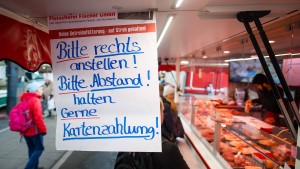 Fleischerei Fischer GmbH
Bitte rechts
anstellen!
Bitte Abstand!
halten
Gerne
Kartenzahlung!